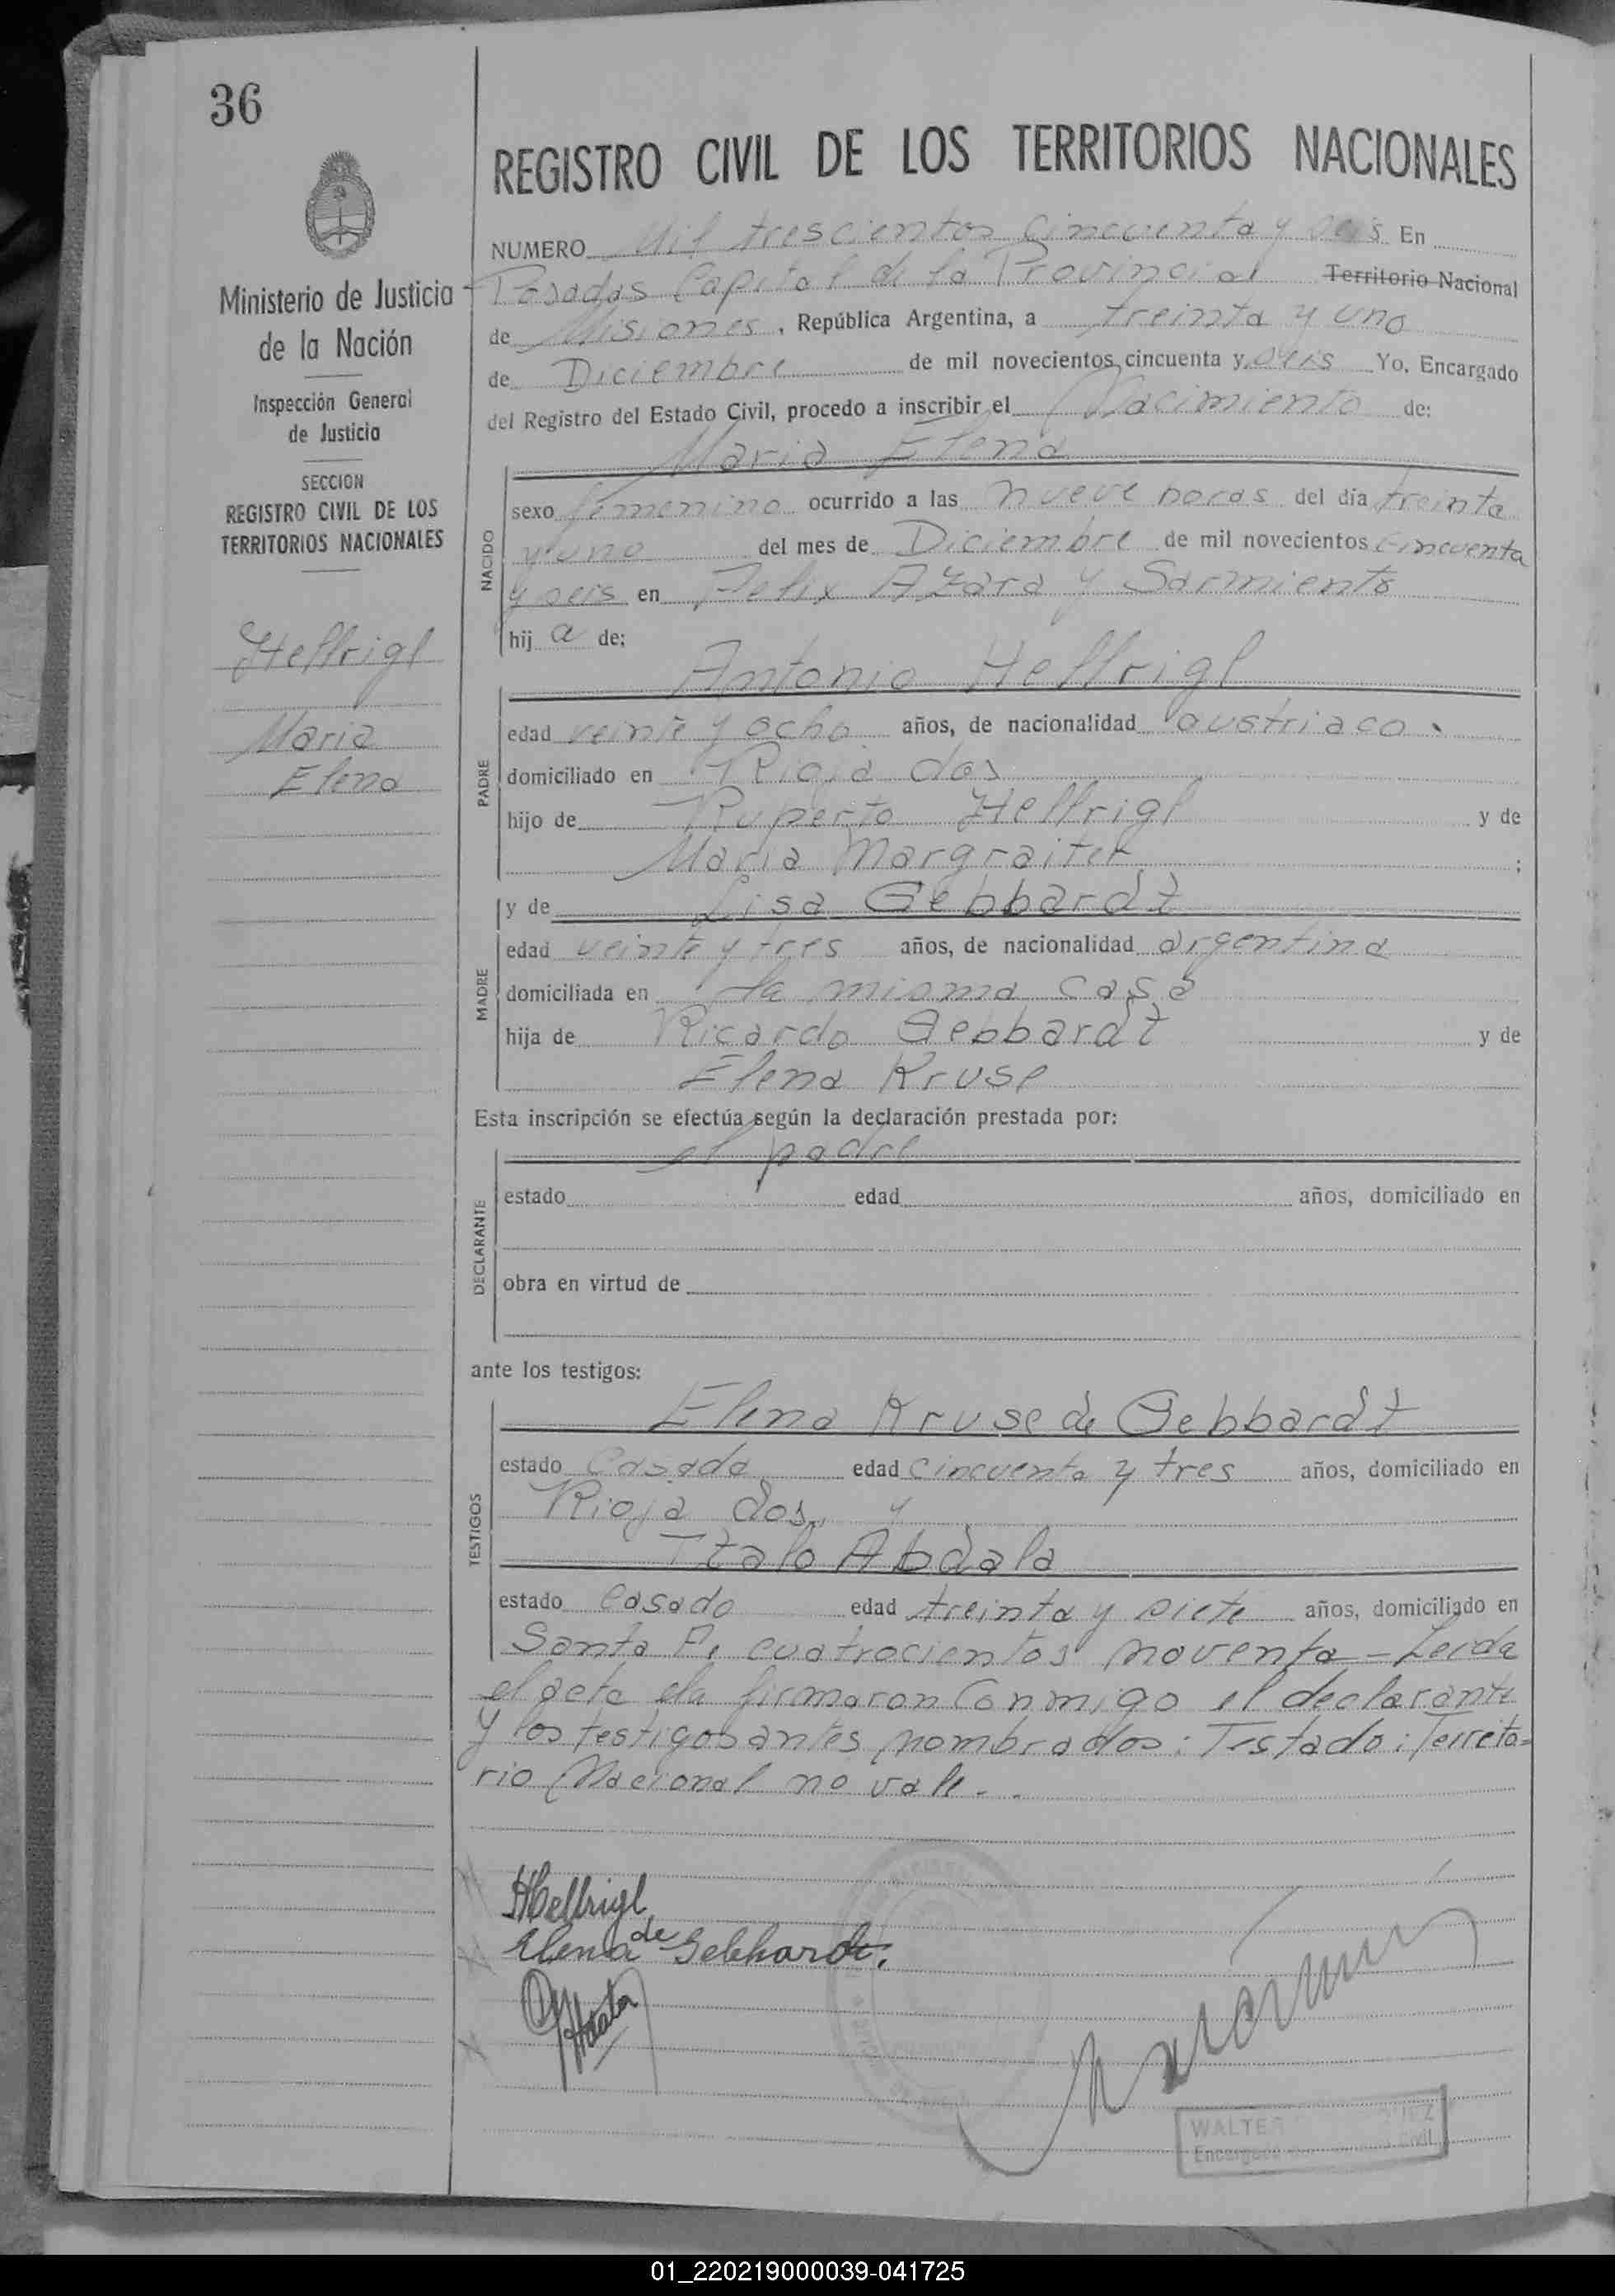 36
REGISTRO CIVIL DE LOS TERRITORIOS NACIONALES
Ministerio de Justicia
de la Nación
Inspección General
de Justicia
SECCION
REGISTRO CIVIL DE LOS
TERRITORIOS NACIONALES
Hellrigl
Maria
Elena
NUMERO Mil trescientos cincuenta y seis En
Posadas Capital de la Provincia Territorio Nacional
de Misiones, República Argentina, a treinta y uno
de Diciembre de mil novecientos cincuenta y seis Yo, Encargado
del Registro del Estado Civil, procedo a inscribir el Nacimiento de:
Maria Elena
NACIDO
sexo femenino ocurrido a las nueve horas del día treinta
y uno del mes de Diciembre de mil novecientos cincuenta
y seis en Felix Azara y Sarmiento
hija de:
Antonio Hellrigl
PADRE
edad veinte y ocho años, de nacionalidad austriaco
domiciliado en Rioja dos
hijo de Ruperto Hellrigl y de
Maria Margraiter ;
y de Lisa Gebhardt
MADRE
edad veinte y tres años, de nacionalidad argentina
domiciliada en la misma casa
hija de Ricardo Gebhardt y de
Elena Kruse
Esta inscripción se efectúa según la declaración prestada por:
el padre
DECLARANTE
estado edad años, domiciliado en
obra en virtud de
ante los testigos:
Elena Kruse de Gebhardt
TESTIGOS
estado Casada edad cincuenta y tres años, domiciliado en
Rioja dos, y
Italo Abdala
estado Casado edad treinta y siete años, domiciliado en
Santa Fe cuatrocientos noventa = Leida
el acta la firmaron conmigo el declarante
y los testigos antes nombrados: Testado: Territo=
rio Nacional no vale.-
Hellrigl
Elena de Gebhardt.
WALTER
Encargado Civil
01_220219000039-041725